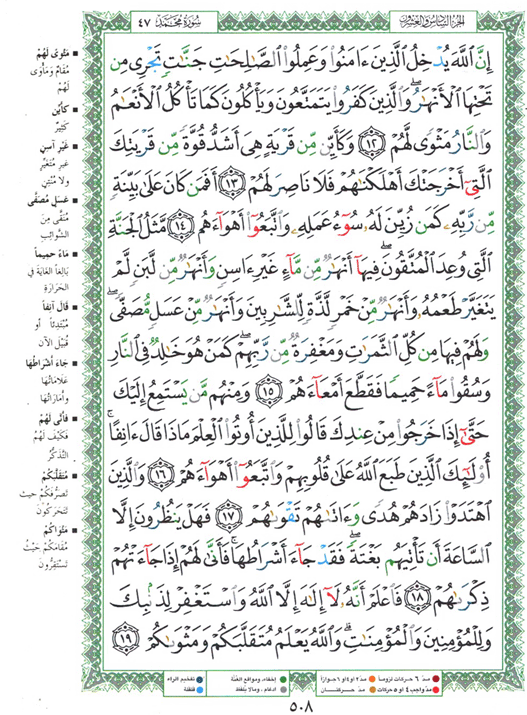 الجزء السادس والعشرون
سورة محمد ٤٧
إِنَّ ٱللَّهَ يُدْخِلُ ٱلَّذِينَ ءَامَنُوا۟ وَعَمِلُوا۟ ٱلصَّـٰلِحَـٰتِ جَنَّـٰتٍ تَجْرِى مِن
تَحْتِهَا ٱلْأَنْهَـٰرُ ۖ وَٱلَّذِينَ كَفَرُوا۟ يَتَمَتَّعُونَ وَيَأْكُلُونَ كَمَا تَأْكُلُ ٱلْأَنْعَـٰمُ
وَٱلنَّارُ مَثْوًى لَّهُمْ ١٢ وَكَأَيِّن مِّن قَرْيَةٍ هِىَ أَشَدُّ قُوَّةً مِّن قَرْيَتِكَ
ٱلَّتِىٓ أَخْرَجَتْكَ أَهْلَكْنَـٰهُمْ فَلَا نَاصِرَ لَهُمْ ١٣ أَفَمَن كَانَ عَلَىٰ بَيِّنَةٍ
مِّن رَّبِّهِۦ كَمَن زُيِّنَ لَهُۥ سُوٓءُ عَمَلِهِۦ وَٱتَّبَعُوٓا۟ أَهْوَآءَهُم ١٤ مَّثَلُ ٱلْجَنَّةِ
ٱلَّتِى وُعِدَ ٱلْمُتَّقُونَ ۖ فِيهَآ أَنْهَـٰرٌ مِّن مَّآءٍ غَيْرِ ءَاسِنٍ وَأَنْهَـٰرٌ مِّن لَّبَنٍ لَّمْ
يَتَغَيَّرْ طَعْمُهُۥ وَأَنْهَـٰرٌ مِّنْ خَمْرٍ لَّذَّةٍ لِّلشَّـٰرِبِينَ وَأَنْهَـٰرٌ مِّنْ عَسَلٍ مُّصَفًّى ۖ
وَلَهُمْ فِيهَا مِن كُلِّ ٱلثَّمَرَٰتِ وَمَغْفِرَةٌ مِّن رَّبِّهِمْ ۖ كَمَنْ هُوَ خَـٰلِدٌ فِى ٱلنَّارِ
وَسُقُوا۟ مَآءً حَمِيمًا فَقَطَّعَ أَمْعَآءَهُمْ ١٥ وَمِنْهُم مَّن يَسْتَمِعُ إِلَيْكَ
حَتَّىٰٓ إِذَا خَرَجُوا۟ مِنْ عِندِكَ قَالُوا۟ لِلَّذِينَ أُوتُوا۟ ٱلْعِلْمَ مَاذَا قَالَ ءَانِفًا ۚ
أُو۟لَـٰٓئِكَ ٱلَّذِينَ طَبَعَ ٱللَّهُ عَلَىٰ قُلُوبِهِمْ وَٱتَّبَعُوٓا۟ أَهْوَآءَهُمْ ١٦ وَٱلَّذِينَ
ٱهْتَدَوْا۟ زَادَهُمْ هُدًى وَءَاتَىٰهُمْ تَقْوَىٰهُمْ ١٧ فَهَلْ يَنظُرُونَ إِلَّا
ٱلسَّاعَةَ أَن تَأْتِيَهُم بَغْتَةً ۖ فَقَدْ جَآءَ أَشْرَاطُهَا ۚ فَأَنَّىٰ لَهُمْ إِذَا جَآءَتْهُمْ
ذِكْرَىٰهُمْ ١٨ فَٱعْلَمْ أَنَّهُۥ لَآ إِلَـٰهَ إِلَّا ٱللَّهُ وَٱسْتَغْفِرْ لِذَنۢبِكَ
وَلِلْمُؤْمِنِينَ وَٱلْمُؤْمِنَـٰتِ ۗ وَٱللَّهُ يَعْلَمُ مُتَقَلَّبَكُمْ وَمَثْوَىٰكُمْ ١٩
مَثْوًى لَهُمْ
مُقَامٌ وَمَأْوًى
لَهُمْ
كَأَيِّنْ
كَثِيرٌ
غَيْرِ آسِنٍ
غير مُتَغَيِّرٍ
ولا مُنْتِنٍ
عَسَلٍ مُصَفًّى
مُنَقًّى مِنَ
الشَّوَائِبِ
مَاءً حَمِيماً
بَالِغاً الغَايَةَ في
الحَرَارَةِ
قَالَ آنِفاً
مُبْتَدِئاً أو
قُبَيْلَ الآنَ
جَاءَ أَشْرَاطُهَا
عَلَامَاتُهَا
وأَمَارَاتُهَا
فَأَنَّى لَهُمْ
فَكَيْفَ لَهُمُ
التَّذَكُّرُ
مُتَقَلَّبَكُمْ
تَصَرُّفَكُمْ حيث
تَتَحَرَّكُونَ
مَثْوَاكُمْ
مُقَامَكُمْ حَيْثُ
تَسْتَقِرُّونَ
مدّ ٦ حركات لزوماً
مدّ ٢ أو ٤ أو ٦ جوازاً
إخفاء، ومواقع الغُنَّة
تفخيم الراء
مدّ واجب ٤ أو ٥ حركات
مدّ حركتان
ادغام، ومالا يُلفظ
قلقلة
٥٠٨